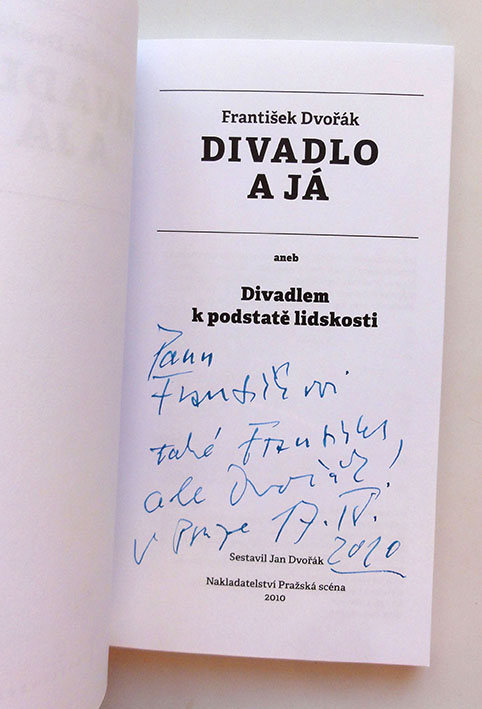 František Dvořák
DIVADLO
A JÁ
aneb
Divadlem
k podstatě lidskosti
Panu
Františkovi
také František,
ale Dvořák!
v Praze 17. IV.
2010
Sestavil Jan Dvořák
Nakladatelství Pražská scéna
2010